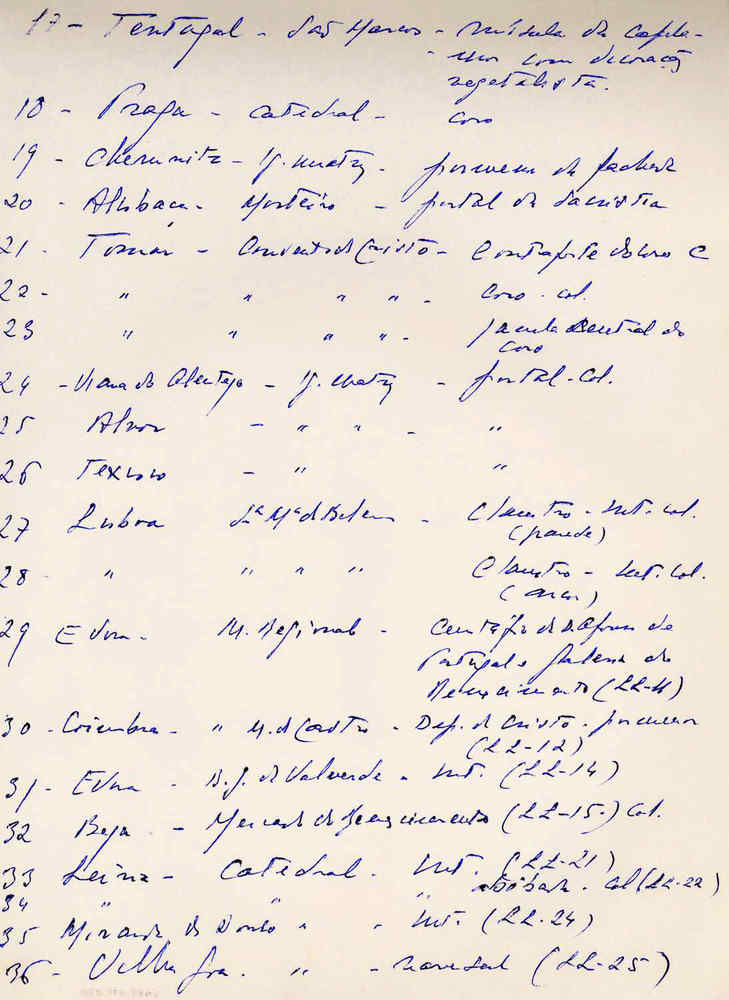 17 - Tentugal - São Marcos - mísula da capela-
mor com decoração
vegetalista.
18 - Praga - catedral - coro
19 - Chemnitz - Ig. matriz - pormenor da fachada
20 - Alcobaça - Mosteiro - portal da sacristia
21 - Tomar - Convento de Cristo - Contraforte do coro C
22 - " " " " - coro - col.
23 " " " " - janela central do
coro
24 - Viana do Alentejo - Ig. matriz - portal - col.
25 Alvor - " " - "
26 - " "
27 Lisboa Stª Mª de Belem - Claustro - Int. col.
(parede)
28 - " " " " Claustro - Int. col.
29 Evora - M. Regional - de D. Afonso de
Portugal
Renascimento (LL-11)
30 - Coimbra - " M. de Castro - Dep. de Cristo - pormenor
(LL-12)
31 - Evora - B. J. de Valverde - Int. (LL-14)
32 Beja - do Renascimento (LL-15-) Col.
33 Leiria - Catedral - Int. (LL-21)
34 " " " abóbada - col (LL-22)
35 Miranda do Douro " " Int. (LL-24)
36 - " - (LL-25)